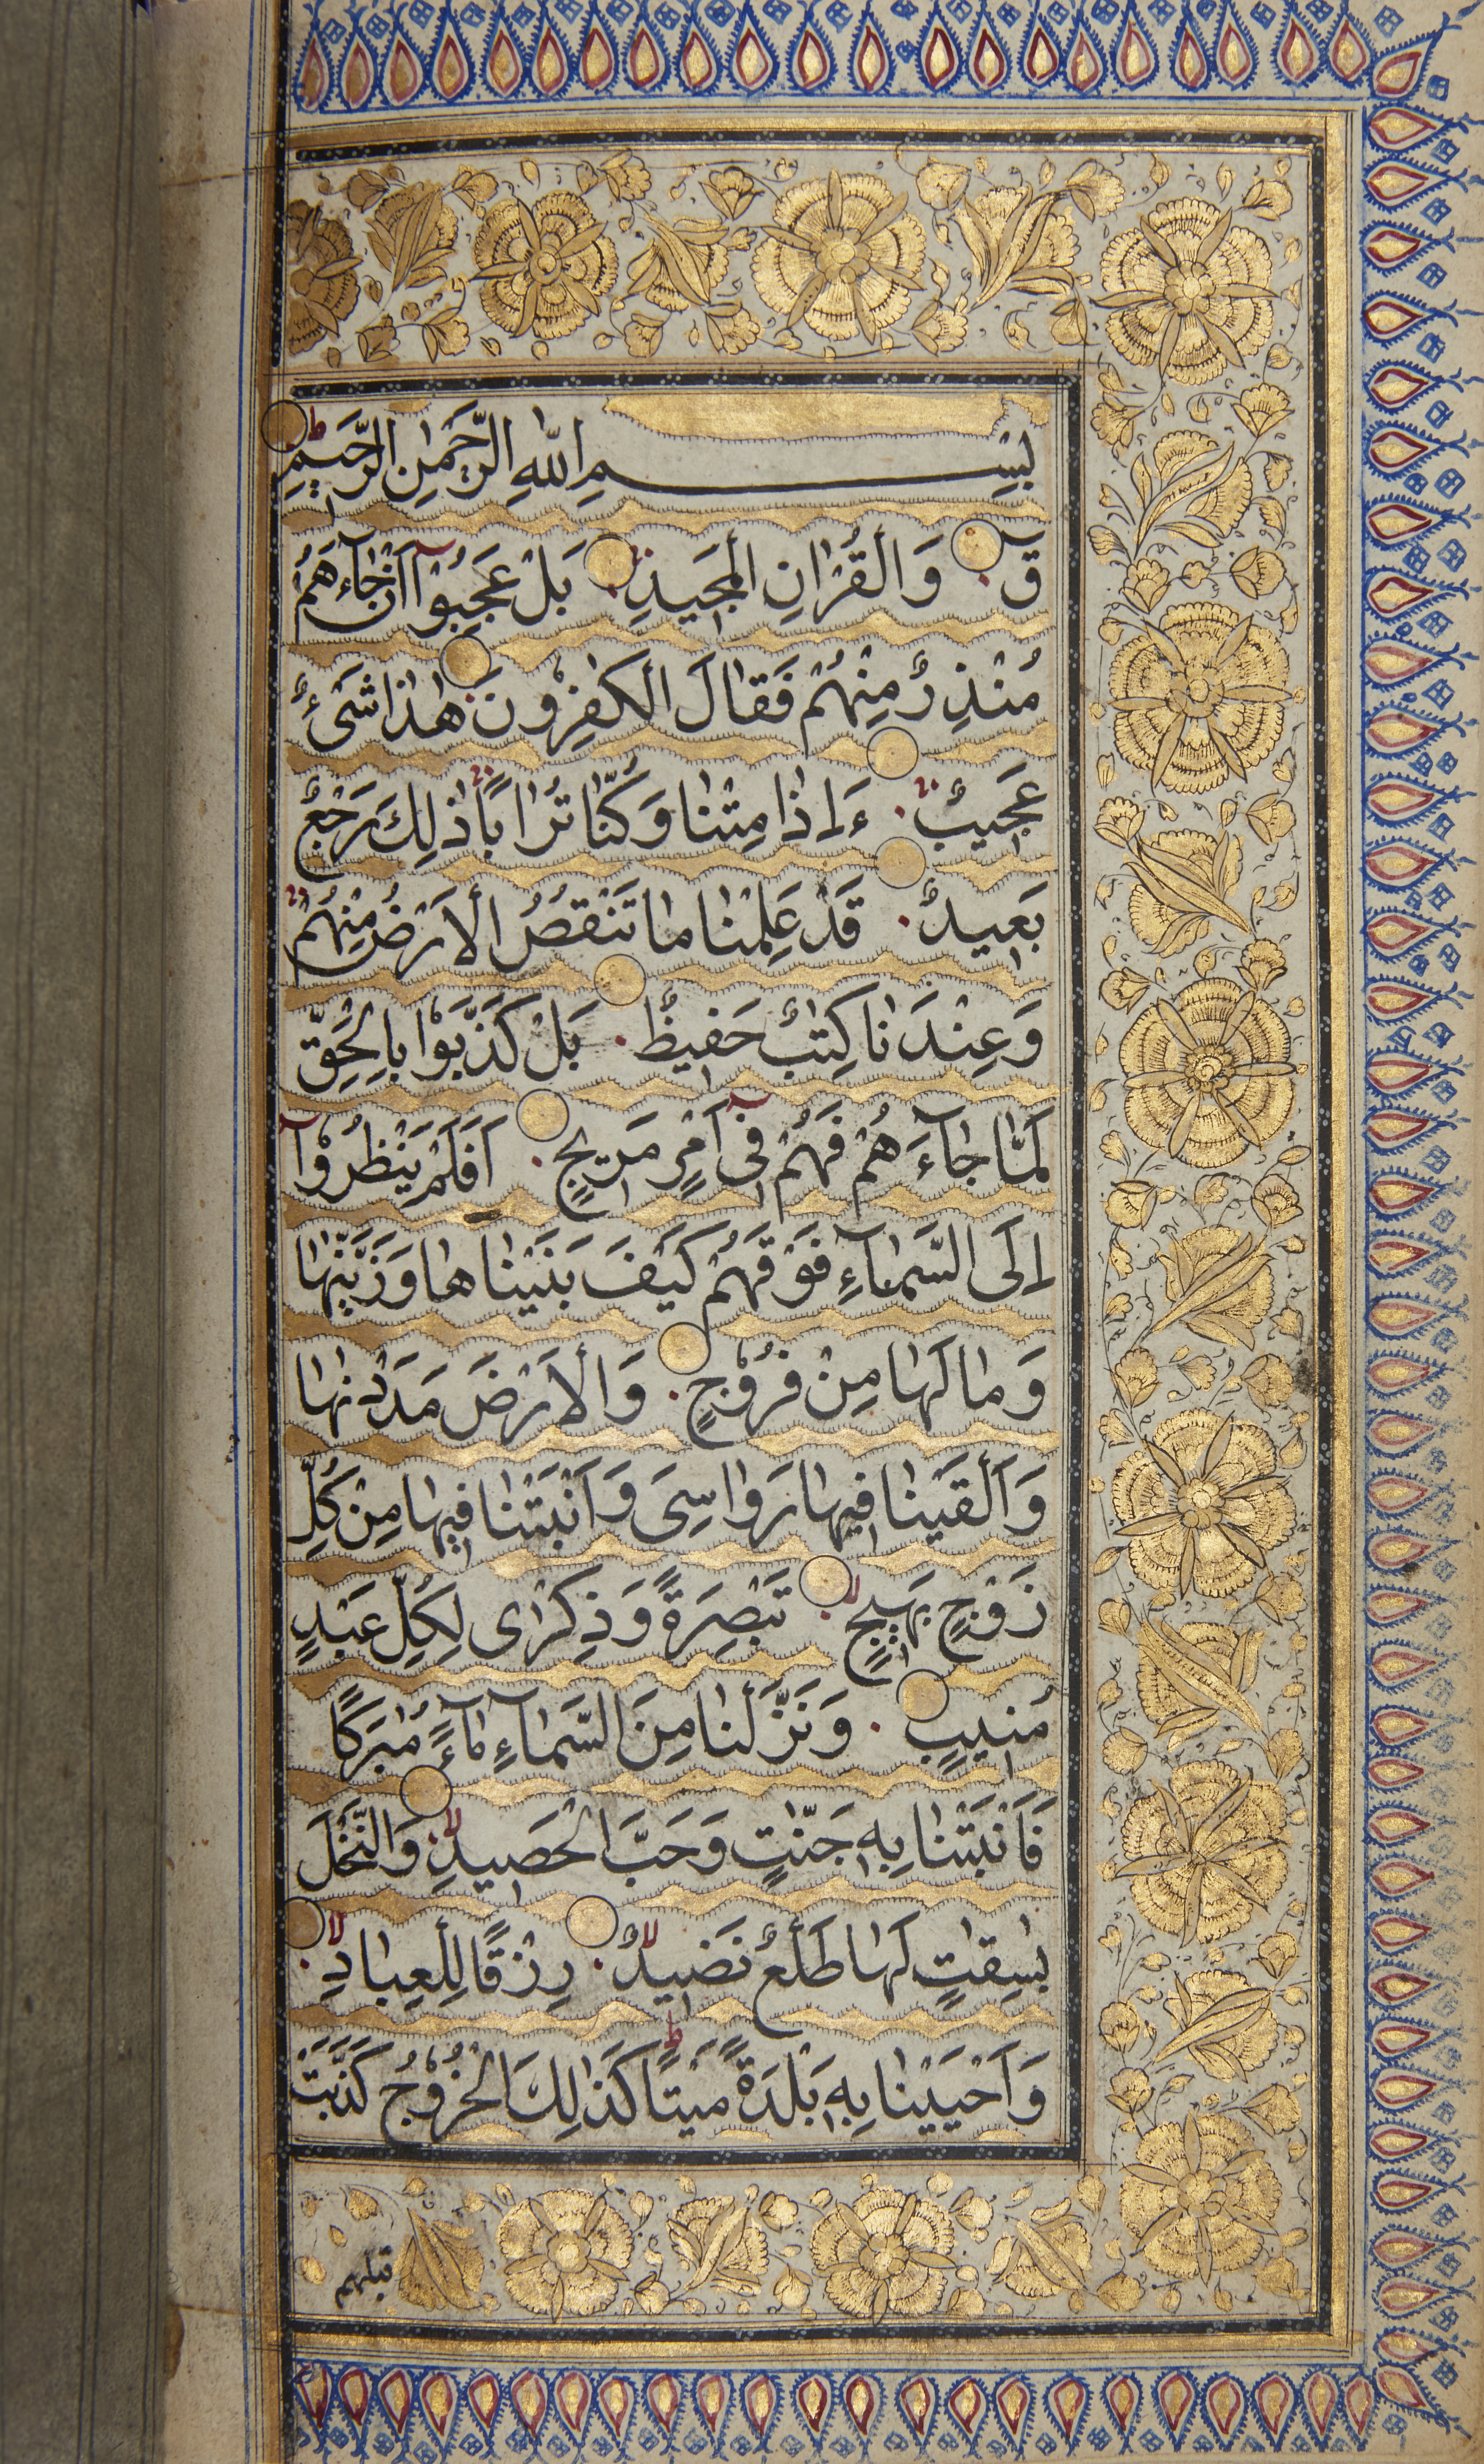 بِسْمِ اللّٰهِ الرَّحْمٰنِ الرَّحيمِ ط
قٓ وَالْقُرْاٰنِ الْمَجيدِ بَلْ عَجِبُوْٓا اَنْ جَاءَهُمْ
مُنْذِرٌ مِنْهُمْ فَقَالَ الْكٰفِرُوْنَ هٰذَا شَىْءٌ
عَجيبٌ ءَاِذَا مِتْنَا وَكُنَّا تُرَابًا ذٰلِكَ رَجْعٌ
بَعيدٌ قَدْ عَلِمْنَا مَا تَنْقُصُ الْاَرْضُ مِنْهُمْ
وَعِنْدَنَا كِتٰبٌ حَفيظٌ بَلْ كَذَّبُوْا بِالْحَقِّ
لَمَّا جَآءَهُمْ فَهُمْ فىٓ اَمْرٍ مَريجٍ اَفَلَمْ يَنْظُرُوْٓا
اِلَى السَّمَآءِ فَوْقَهُمْ كَيْفَ بَنَيْنَاهَا وَزَيَّنّٰهَا
وَمَا لَهَا مِنْ فُرُوْجٍ وَالْاَرْضَ مَدَدْنٰهَا
وَاَلْقَيْنَا فيهَا رَوَاسِىَ وَاَنْبَتْنَا فيهَا مِنْ كُلِّ
زَوْجٍ بَهيجٍ لا تَبْصِرَةً وَذِكْرٰى لِكُلِّ عَبْدٍ
مُنيبٍ وَنَزَّلْنَا مِنَ السَّمَآءِ مَآءً مُبٰرَكًا
فَاَنْبَتْنَا بِهٖ جَنّٰتٍ وَحَبَّ الْحَصيدِ لا وَالنَّخْلَ
بٰسِقٰتٍ لَهَا طَلْعٌ نَضيدٌ لا رِزْقًا لِلْعِبَادِ لا
وَاَحْيَيْنَا بِهٖ بَلْدَةً مَيْتًا ط كَذٰلِكَ الْخُرُوْجُ كَذَّبَتْ
قبلهم